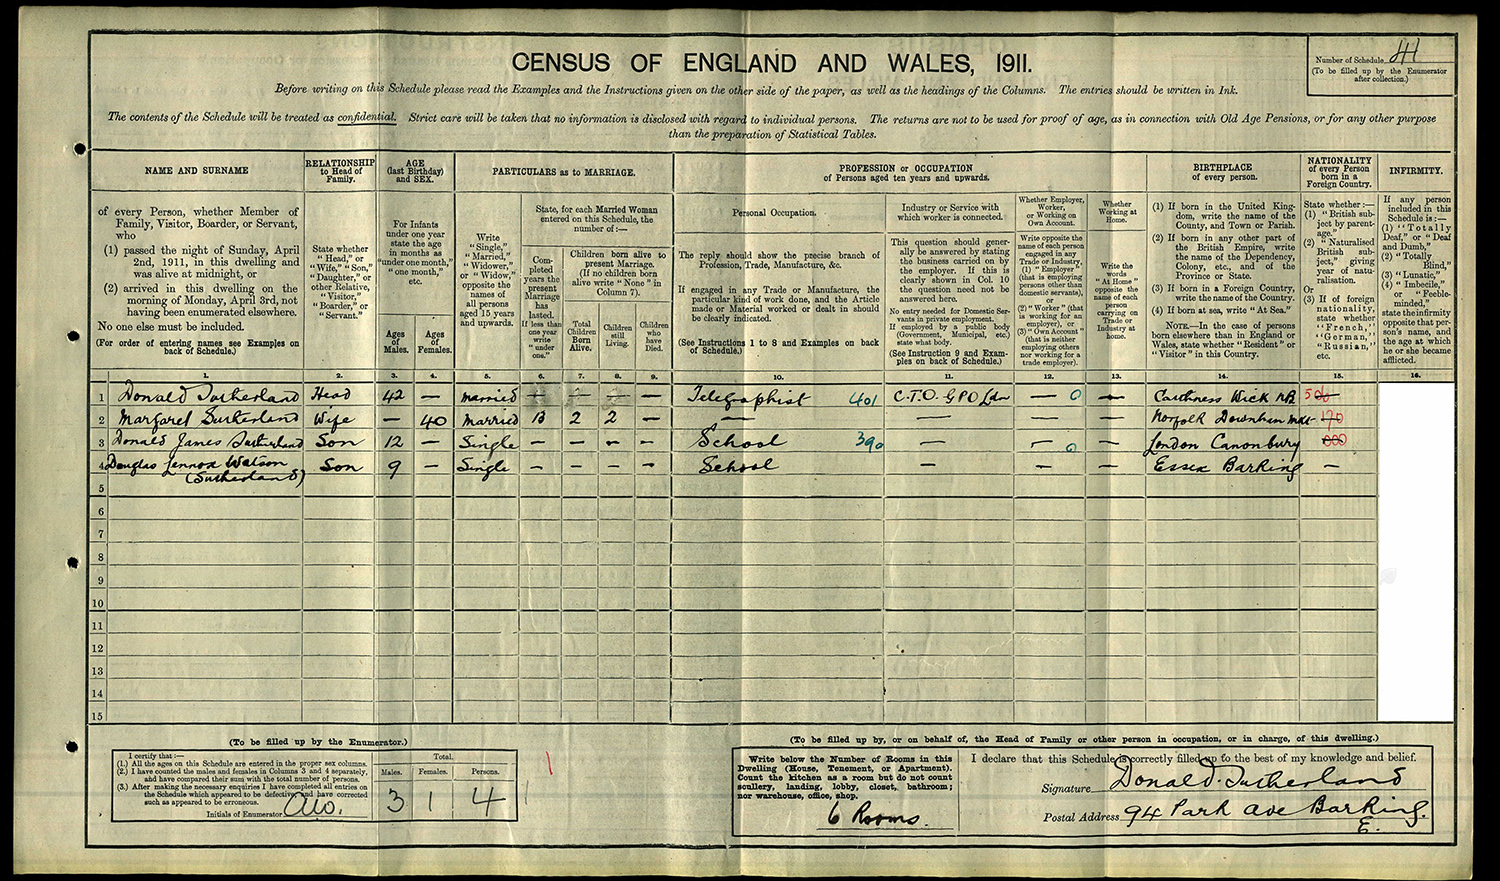 CENSUS OF ENGLAND AND WALES, 1911.
Number of Schedule 41
(To be filled up by the Enumerator
after collection.)
Before writing on this Schedule please read the Examples and the Instructions given on the other side of the paper, as well as the headings of the Columns. The entries should be written in Ink.
The contents of the Schedule will be treated as confidential. Strict care will be taken that no information is disclosed with regard to individual persons. The returns are not to be used for proof of age, as in connection with Old Age Pensions, or for any other purpose
than the preparation of Statistical Tables.
NAME AND SURNAME
of every Person, whether Member of
Family, Visitor, Boarder, or Servant,
who
(1) passed the night of Sunday, April
2nd, 1911, in this dwelling and
was alive at midnight, or
(2) arrived in this dwelling on the
morning of Monday, April 3rd, not
having been enumerated elsewhere.
No one else must be included.
(For order of entering names see Examples on
back of Schedule.)
RELATIONSHIP
to Head of
Family.
State whether
"Head," or
"Wife," "Son,"
"Daughter," or
other Relative,
"Visitor,"
"Boarder," or
"Servant."
AGE
(last Birthday)
and SEX.
For Infants
under one year
state the age
in months as
"under one month,"
"one month,"
etc.
Ages
of
Males.
Ages
of
Females.
PARTICULARS as to MARRIAGE.
Write
"Single,"
"Married,"
"Widower,"
or "Widow,"
opposite the
names of
all persons
aged 15 years
and upwards.
State, for each Married Woman
entered on this Schedule, the
number of:—
Completed
years the
present
Marriage
has
lasted.
If less than
one year
write
"under
one."
Children born alive to
present Marriage.
(If no children born
alive write "None" in
Column 7).
Total
Children
Born
Alive.
Children
still
Living.
Children
who
have
Died.
PROFESSION or OCCUPATION
of Persons aged ten years and upwards.
Personal Occupation.
The reply should show the precise branch of
Profession, Trade, Manufacture, &c.
If engaged in any Trade or Manufacture, the
particular kind of work done, and the Article
made or Material worked or dealt in should
be clearly indicated.
(See Instructions 1 to 8 and Examples on back
of Schedule.)
Industry or Service with
which worker is connected.
This question should gener-
ally be answered by stating
the business carried on by
the employer. If this is
clearly shown in Col. 10
the question need not be
answered here.
No entry needed for Domestic Ser-
vants in private employment.
If employed by a public body
(Government, Municipal, etc.)
state what body.
(See Instruction 9 and Exam-
ples on back of Schedule.)
Whether Employer,
Worker,
or Working on
Own Account.
Write opposite the
name of each person
engaged in any
Trade or Industry,
(1) "Employer"
(that is employing
persons other than
domestic servants),
or
(2) "Worker" (that
is working for an
employer), or
(3) "Own Account"
(that is neither
employing others
nor working for a
trade employer).
Whether
Working at
Home.
Write the
words
"At Home"
opposite the
name of each
person
carrying on
Trade or
Industry at
home.
BIRTHPLACE
of every person.
(1) If born in the United King-
dom, write the name of the
County, and Town or Parish.
(2) If born in any other part of
the British Empire, write
the name of the Dependency,
Colony, etc., and of the
Province or State.
(3) If born in a Foreign Country,
write the name of the Country.
(4) If born at sea, write "At Sea."
NOTE.—In the case of persons
born elsewhere than in England or
Wales, state whether "Resident" or
"Visitor" in this Country.
NATIONALITY
of every Person
born in a
Foreign Country.
State whether:—
(1) "British sub-
ject by parent-
age."
(2) "Naturalised
British
subject," giving
year of natu-
ralisation.
Or
(3) If of foreign
nationality,
state whether
"French,"
"German,"
"Russian,"
etc.
INFIRMITY.
If any person
included in this
Schedule is:—
(1) "Totally
Deaf," or "Deaf
and Dumb,"
(2) "Totally
Blind,"
(3) "Lunatic,"
(4) "Imbecile,"
or "Feeble-
minded,"
state the infirmity
opposite that per-
son's name, and
the age at which
he or she became
afflicted.
1. 2. 3. 4. 5. 6. 7. 8. 9. 10. 11. 12. 13. 14. 15. 16.
1 Donald Sutherland Head 42 — married Telegraphist 401 C.T.O. G P O Ldn — 0 — Caithness Wick NB
2 Margaret Sutherland Wife — 40 Married 13 2 2 — — — Norfolk Downham Mkt 170
3 Donald James Sutherland Son 12 — Single — — — — School 390 — — 0 — London Canonbury 000
4 Douglas Lennox Watson Son 9 — Single — — — — School — — — Essex Barking —
(Sutherland)
5
6
7
8
9
10
11
12
13
14
15
(To be filled up by the Enumerator.)
I certify that:—
(1.) All the ages on this Schedule are entered in the proper sex columns.
(2.) I have counted the males and females in Columns 3 and 4 separately,
and have compared their sum with the total number of persons.
(3.) After making the necessary enquiries I have completed all entries on
the Schedule which appeared to be defective, and have corrected
such as appeared to be erroneous.
Initials of Enumerator
Total.
Males. Females. Persons.
3 1 4
(To be filled up by, or on behalf of, the Head of Family or other person in occupation, or in charge, of this dwelling.)
Write below the Number of Rooms in this
Dwelling (House, Tenement, or Apartment).
Count the kitchen as a room but do not count
scullery, landing, lobby, closet, bathroom;
nor warehouse, office, shop.
6 Rooms.
I declare that this Schedule is correctly filled up to the best of my knowledge and belief.
Signature Donald Sutherland
Postal Address 94 Park Ave Barking.
E.